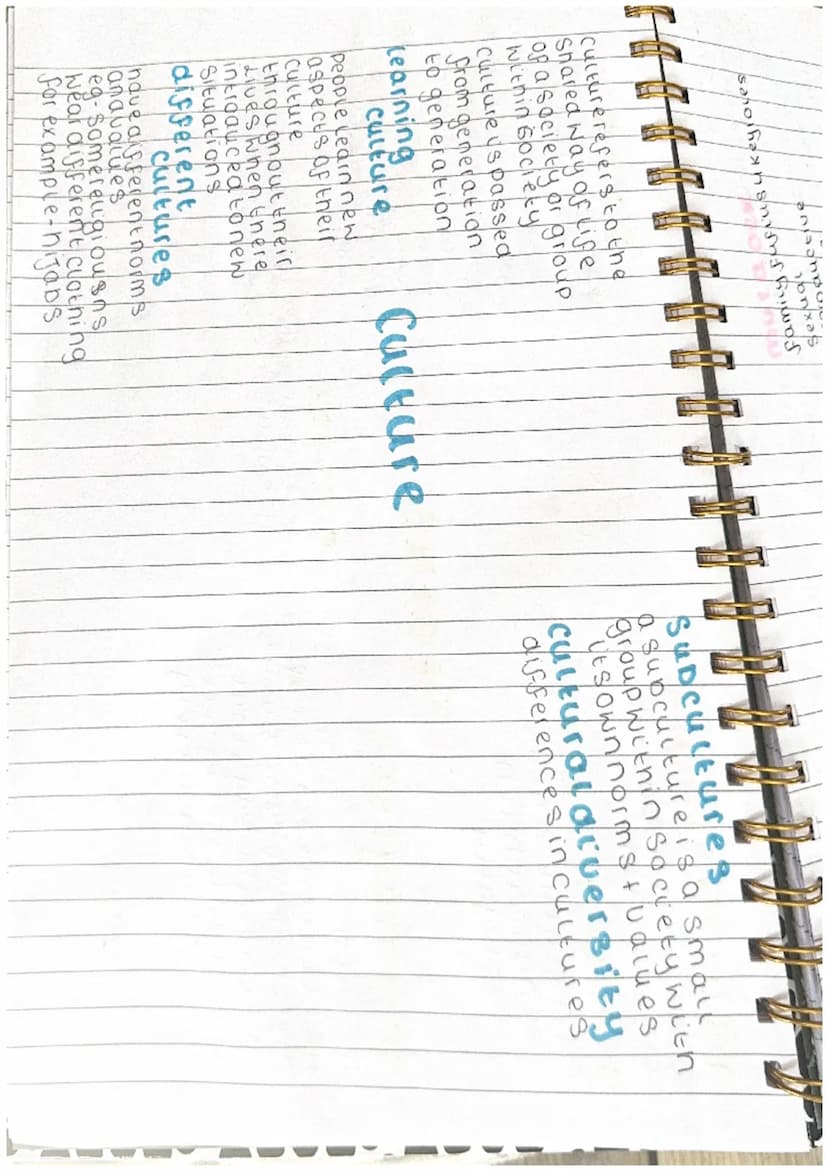 culture refers to the
shared way of life
of a society or group
within society
culture is passed
from generation
to generation
learning
culture
people learn new
aspects of their
culture
throughout their
lives when there
introduced to new
situations
different
cultures
have different norms
and values
eg-some religious ns
wear different clothing
for example-hijabs
Culture
subcultures
a subculture is a small
group within society with
its own norms + values
cultural diversity
differences in cultures
sexual